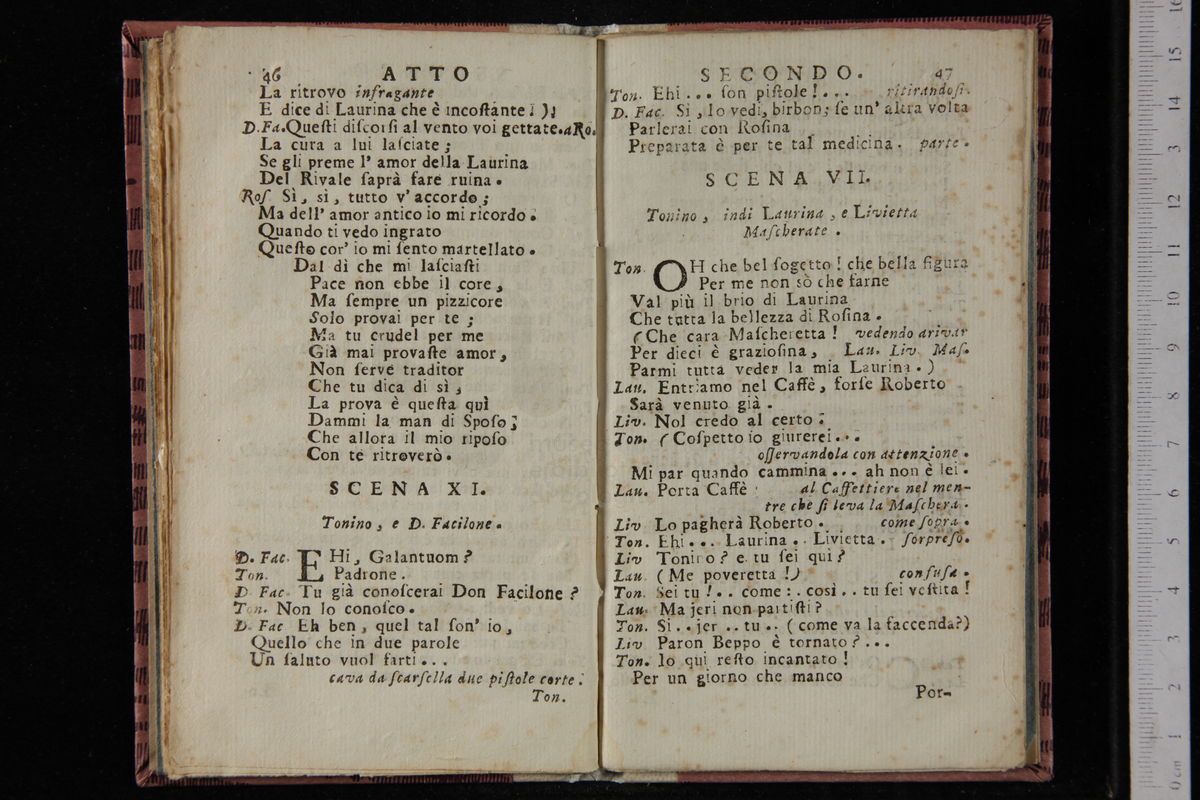 46 ATTO
La ritrovo infragante
E dice di Laurina che è incoſtante! );
D. Fa. Queſti diſcorſi al vento voi gettate. a Ro.
La cura a lui laſciate;
Se gli preme l' amor della Laurina
Del Rivale ſaprà fare ruina.
Roſ Sì, sì, tutto v' accordo;
Ma dell' amor antico io mi ricordo.
Quando ti vedo ingrato
Queſto cor' io mi ſento martellato.
Dal dì che mi laſciaſti
Pace non ebbe il core,
Ma ſempre un pizzicore
Solo provai per te;
Ma tu crudel per me
Già mai provaſte amor,
Non ſerve traditor
Che tu dica di sì,
La prova è queſta quì
Dammi la man di Spoſo;
Che allora il mio ripoſo
Con te ritroverò.
SCENA XI.
Tonino, e D. Facilone.
D. Fac. EHi, Galantuom?
Ton. Padrone.
D Fac. Tu già conoſcerai Don Facilone?
Ton. Non lo conoſco.
D. Fac Eh ben, quel tal ſon' io,
Quello che in due parole
Un ſaluto vuol farti...
cava da ſcarſella due piſtole corte.
Ton.
SECONDO. 47
Ton. Ehi... ſon piſtole!... ritirandoſi.
D. Fac. Si, lo vedi, birbon; ſe un' altra volta
Parlerai con Roſina
Preparata è per te tal medicina. parte.
SCENA VII.
Tonino, indi Laurina, e Livietta
Maſcherate.
Ton. OH che bel ſogetto! che bella figura
Per me non sò che farne
Val più il brio di Laurina
Che tutta la bellezza di Roſina.
(Che cara Maſcheretta! vedendo arivar
Per dieci è grazioſina, Lau. Liv. Maſ.
Parmi tutta veder la mia Laurina.)
Lau. Entriamo nel Caffè, forſe Roberto
Sarà venuto già.
Liv. Nol credo al certo.
Ton. (Coſpetto io giurerei...
oſſervandola con attenzione.
Mi par quando cammina... ah non è lei.
Lau. Porta Caffè: al Caffettiere nel men-
tre che ſi leva la Maſchera.
Liv Lo pagherà Roberto. come ſopra.
Ton. Ehi... Laurina.. Livietta. ſorpreſo.
Liv Tonino? e tu ſei qui?
Lau. (Me poveretta!) confuſa.
Ton. Sei tu!.. come:. così.. tu ſei veſtita!
Lau. Ma jeri non partiſti?
Ton. Si.. jer.. tu.. (come va la faccenda?)
Liv Paron Beppo è tornato?...
Ton. Io qui reſto incantato!
Per un giorno che manco
Por-